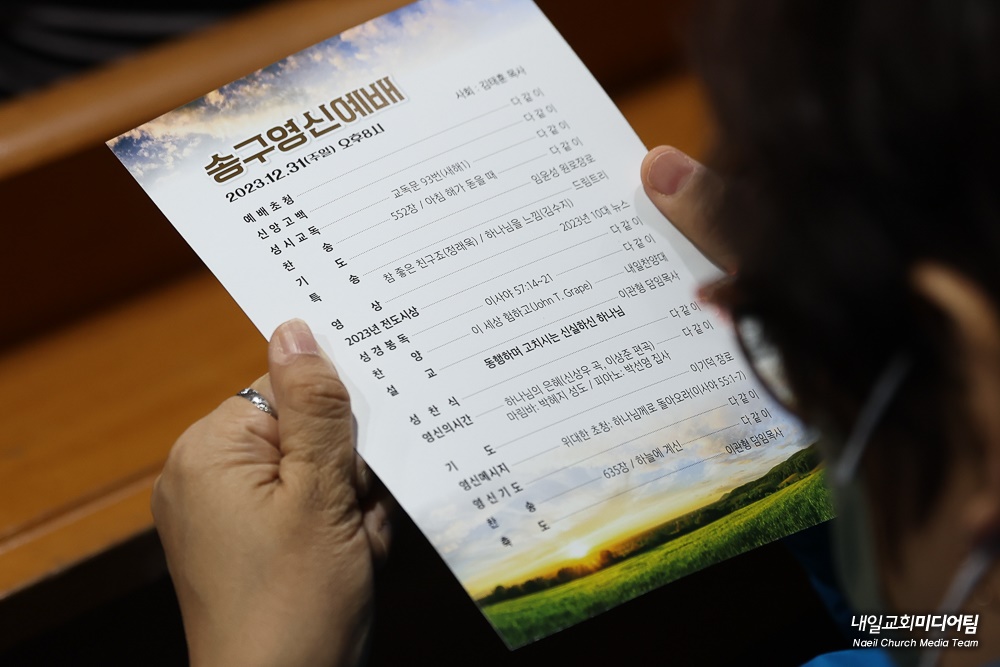 송구영신예배
2023.12.31(주일) 오후8시
사회 : 김태훈 목사
예배초청 다 같 이
신앙고백 다 같 이
성시교독 교독문 93번(새해1) 다 같 이
찬 송 552장 / 아침 해가 돋을 때 다 같 이
기 도 임윤성 원로장로
특 송 참 좋은 친구죠(정래욱) / 하나님을 느낌(김수지) 드림트리
영 상 2023년 10대 뉴스
2023년 전도시상 다 같 이
성경봉독 이사야 57:14~21 다 같 이
찬 양 이 세상 험하고(John T. Grape) 내일찬양대
설 교 동행하며 고치시는 신실하신 하나님 이관형 담임목사
성 찬 식 다 같 이
영신의시간 하나님의 은혜(신상우 곡, 이상준 편곡) 다 같 이
마림바: 박혜지 성도 / 피아노: 박선영 집사
기 도 이기덕 장로
영신메시지 위대한 초청: 하나님께로 돌아오라(이사야 55:1-7)
영신기도 다 같 이
찬 송 635장 / 하늘에 계신 다 같 이
축 도 이관형 담임목사
내일교회미디어팀
Naeil Church Media Team